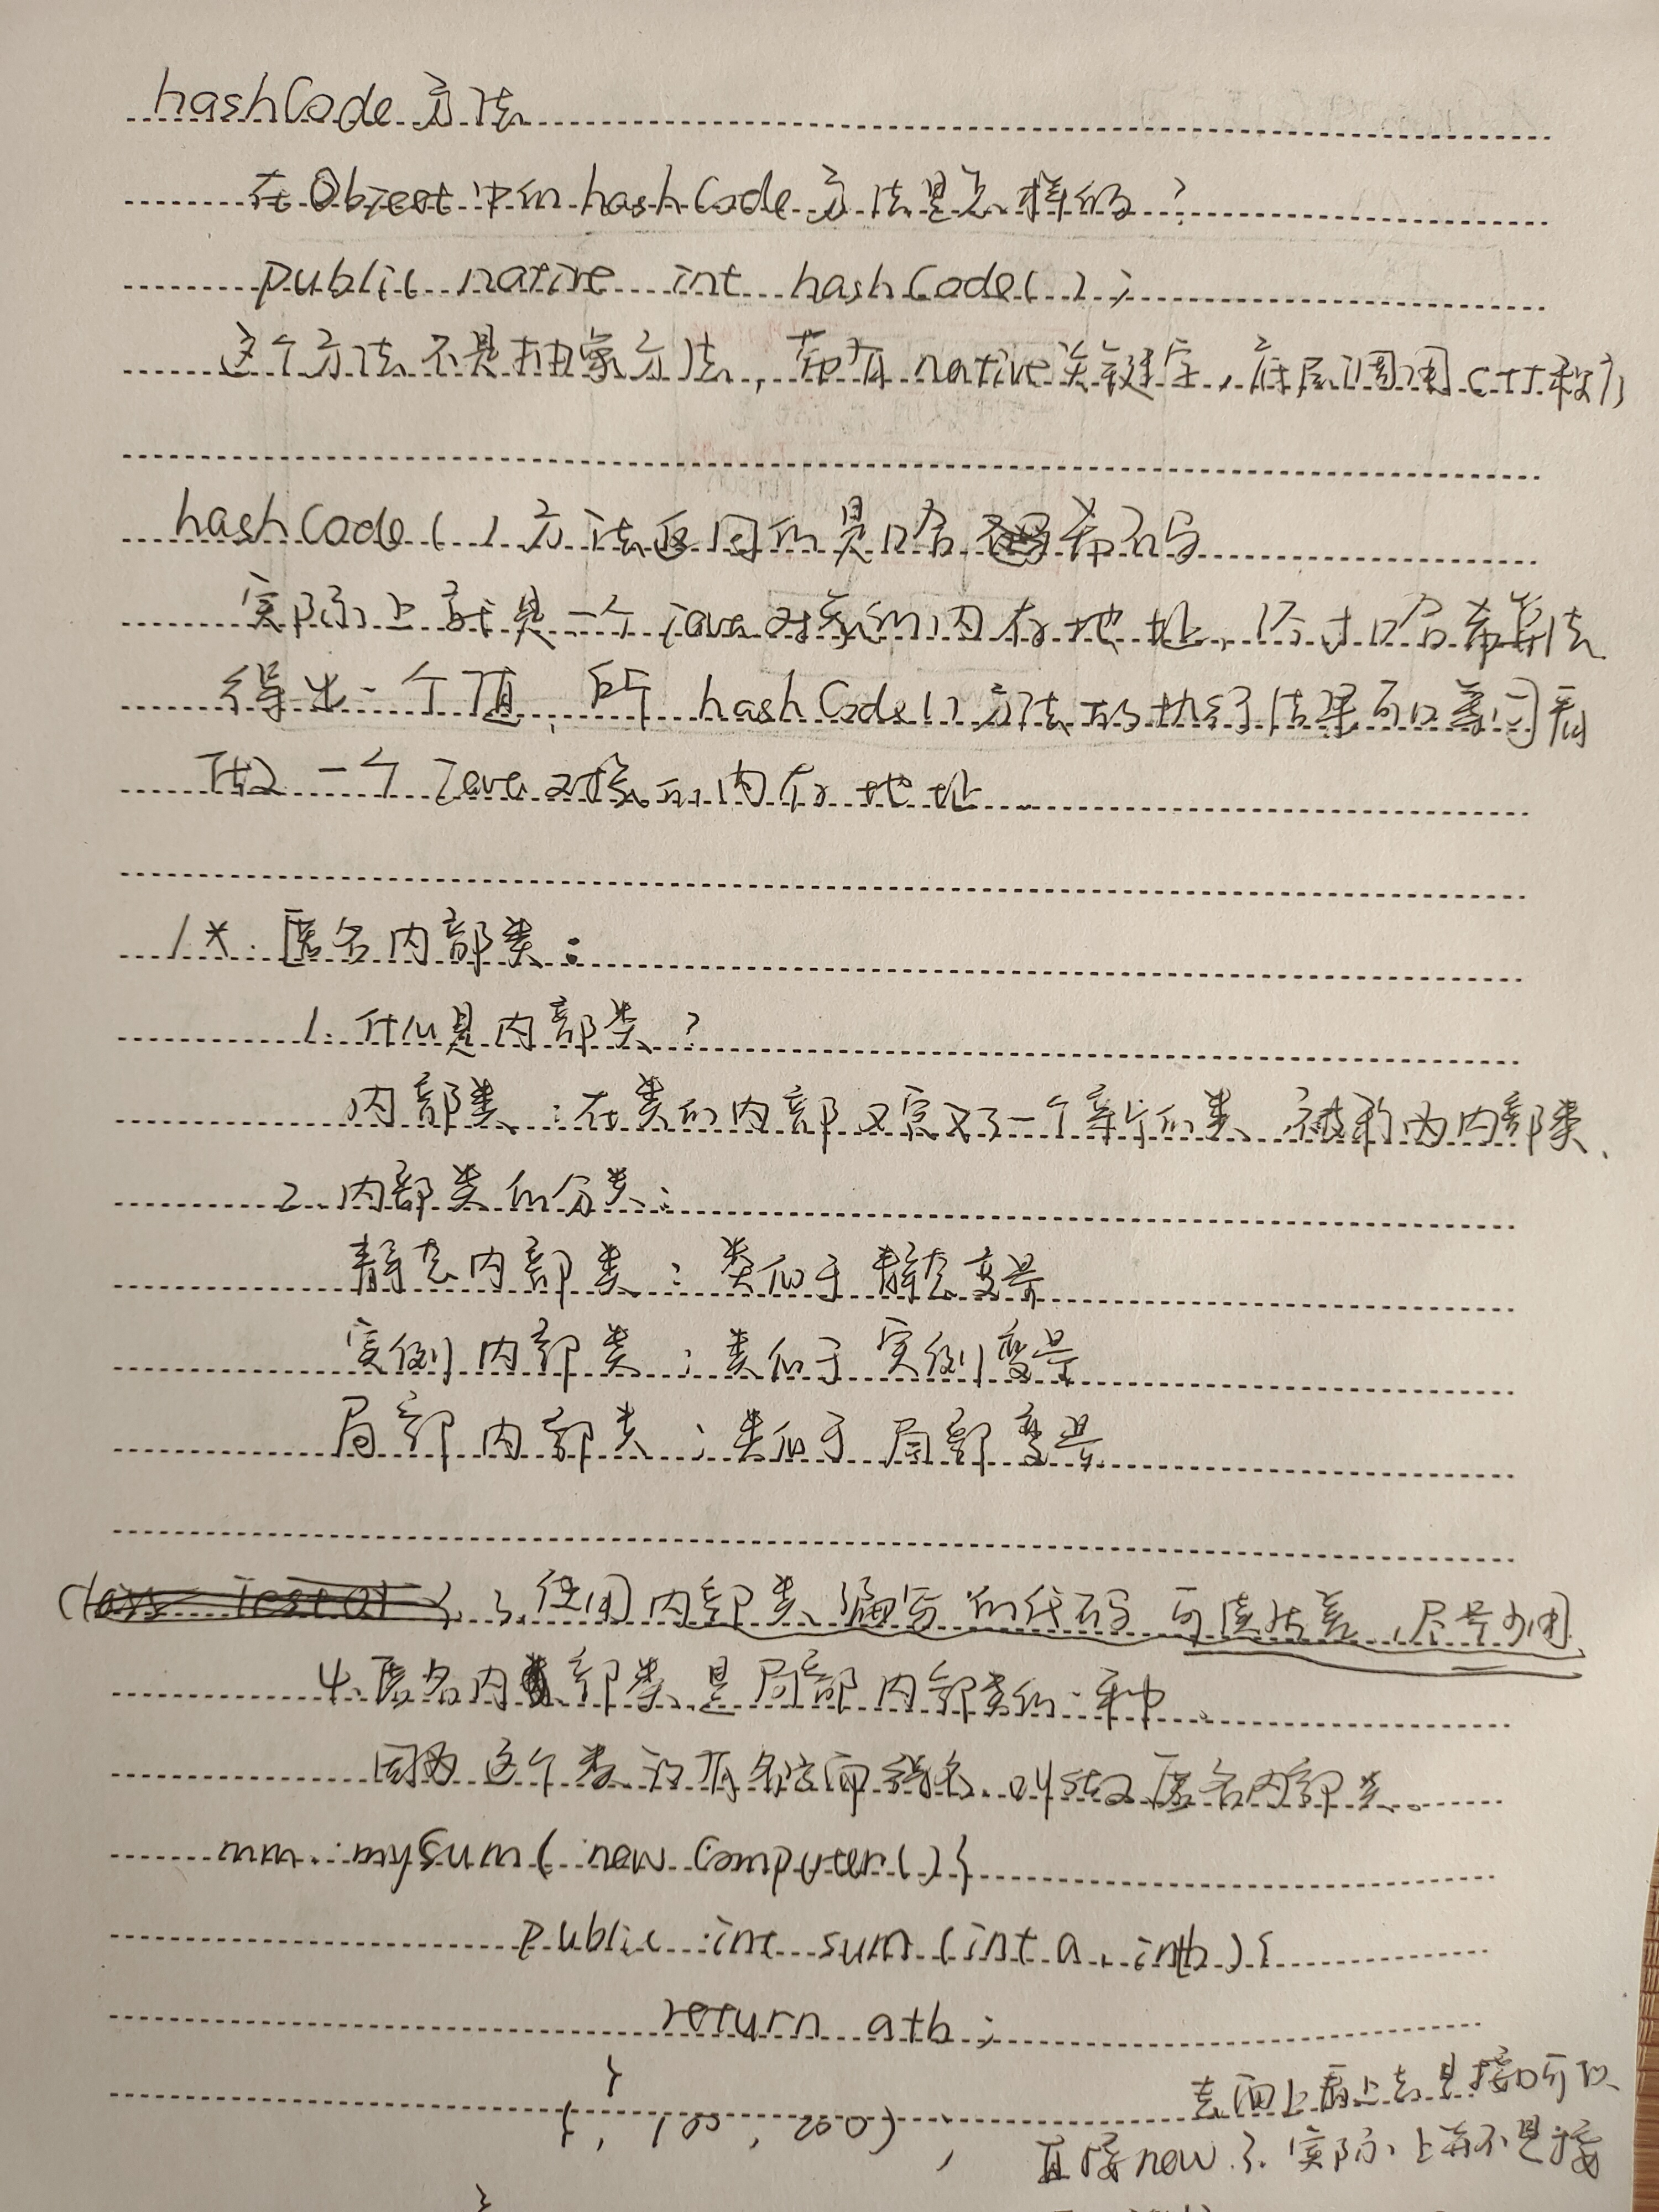 hashCode方法
在Object中的hashCode方法是怎样的?
public native int hashCode();
这个方法不是抽象方法,带有native关键字,底层调用C++程序
hashCode()方法返回的是哈希码
实际上就是一个java对象的内存地址,经过哈希算法
得出一个值,所 hashCode()方法的执行结果可以等同看
做一个Java对象的内存地址
/*.匿名内部类:
1.什么是内部类?
内部类:在类的内部又定义了一个新的类 被称为内部类.
2.内部类的分类:
静态内部类:类似于静态变量
实例内部类:类似于实例变量
局部内部类:类似于局部变量
3.使用内部类编写的代码 可读性差,尽量少用.
4.匿名内部类是局部内部类的一种.
因为这个类没有名字而得名.叫做匿名内部类.
mm.mySum(new Computer(){
public int sum(int a,int b){
return a+b;
}
},100,200);
表面上看上去是接口可以
直接new了.实际上并不是接
}